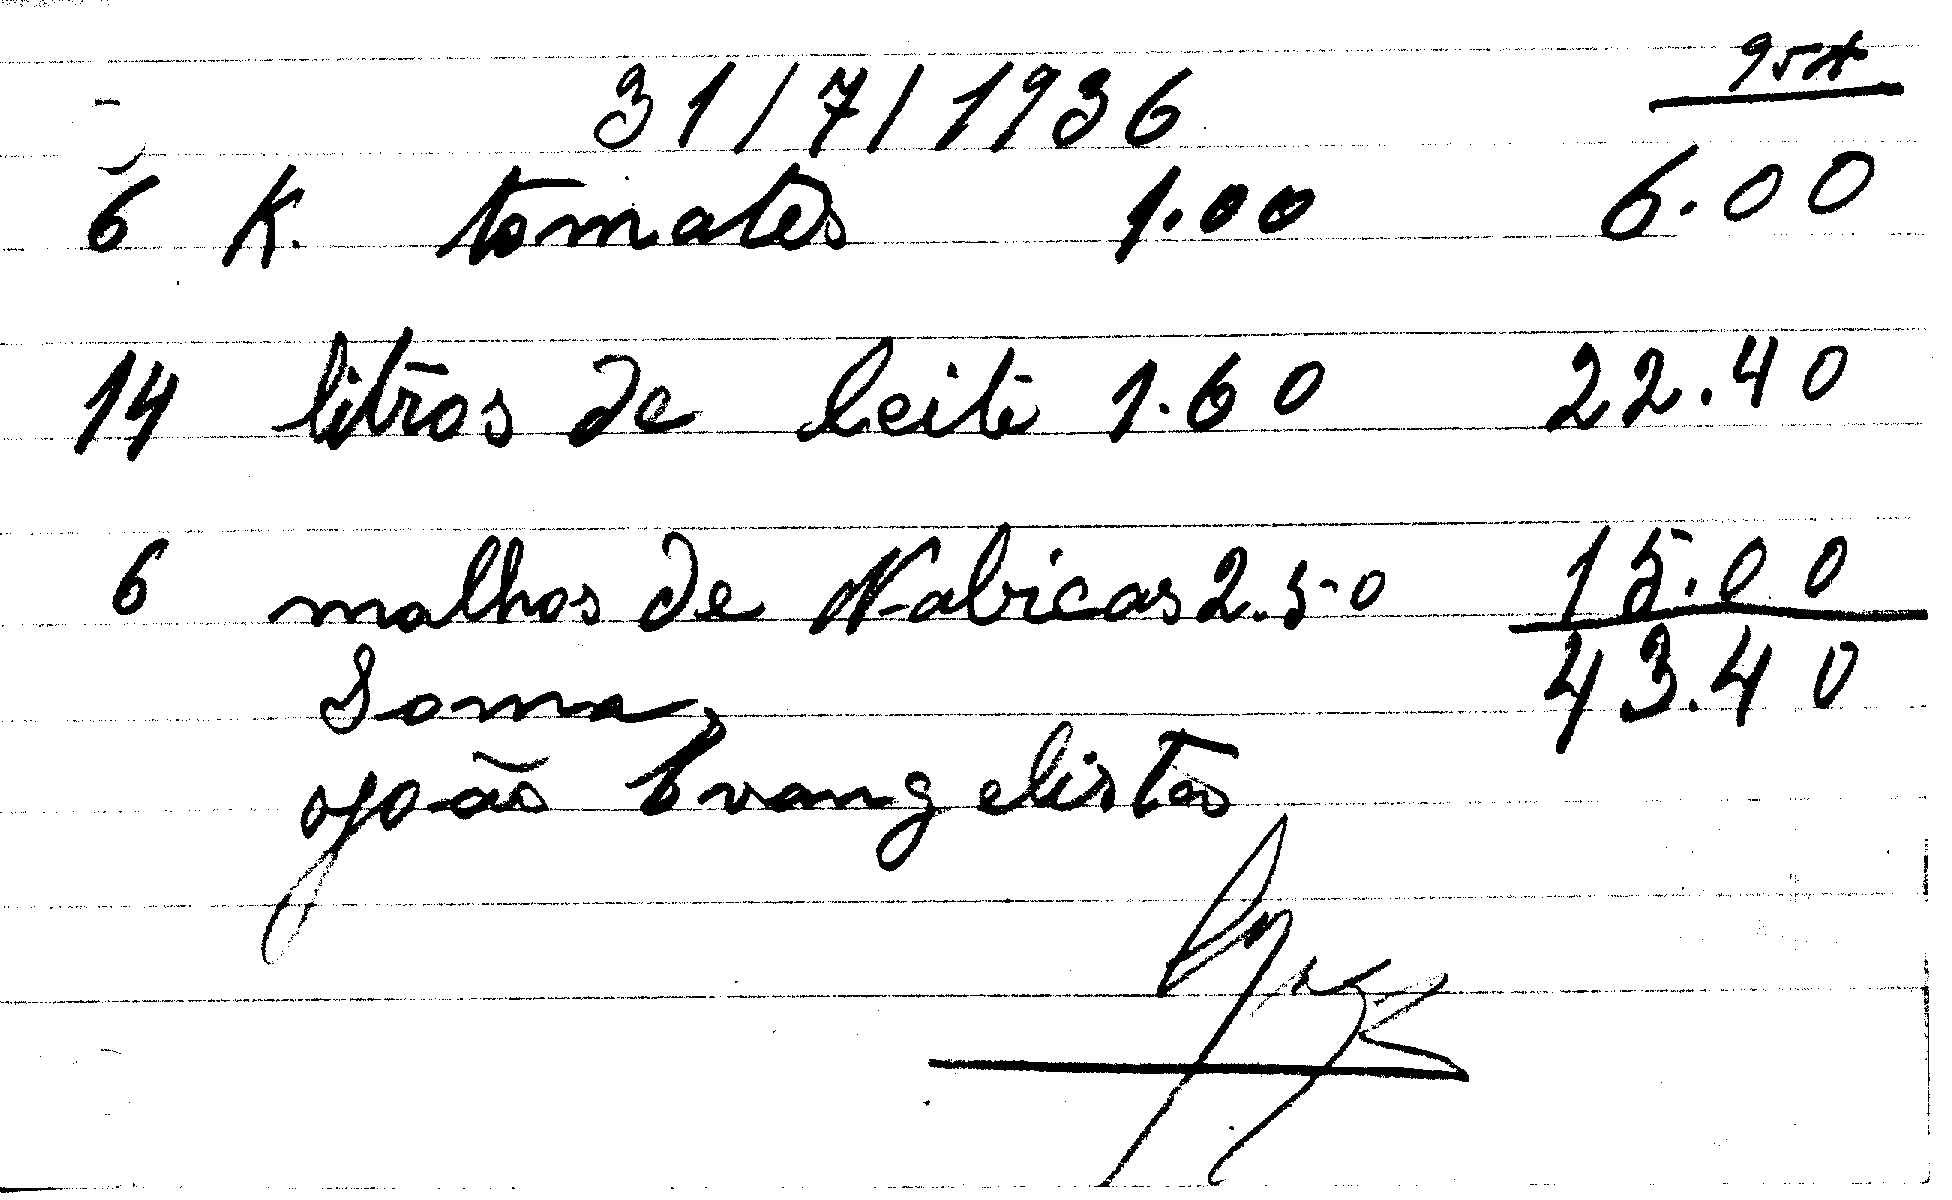 31/7/1936
6 K. tomates 1.00 6.00
14 litros de leite 1.60 22.40
6 malhos de Nabicas 2.50 15.00
Soma 43.40
João Evangelista